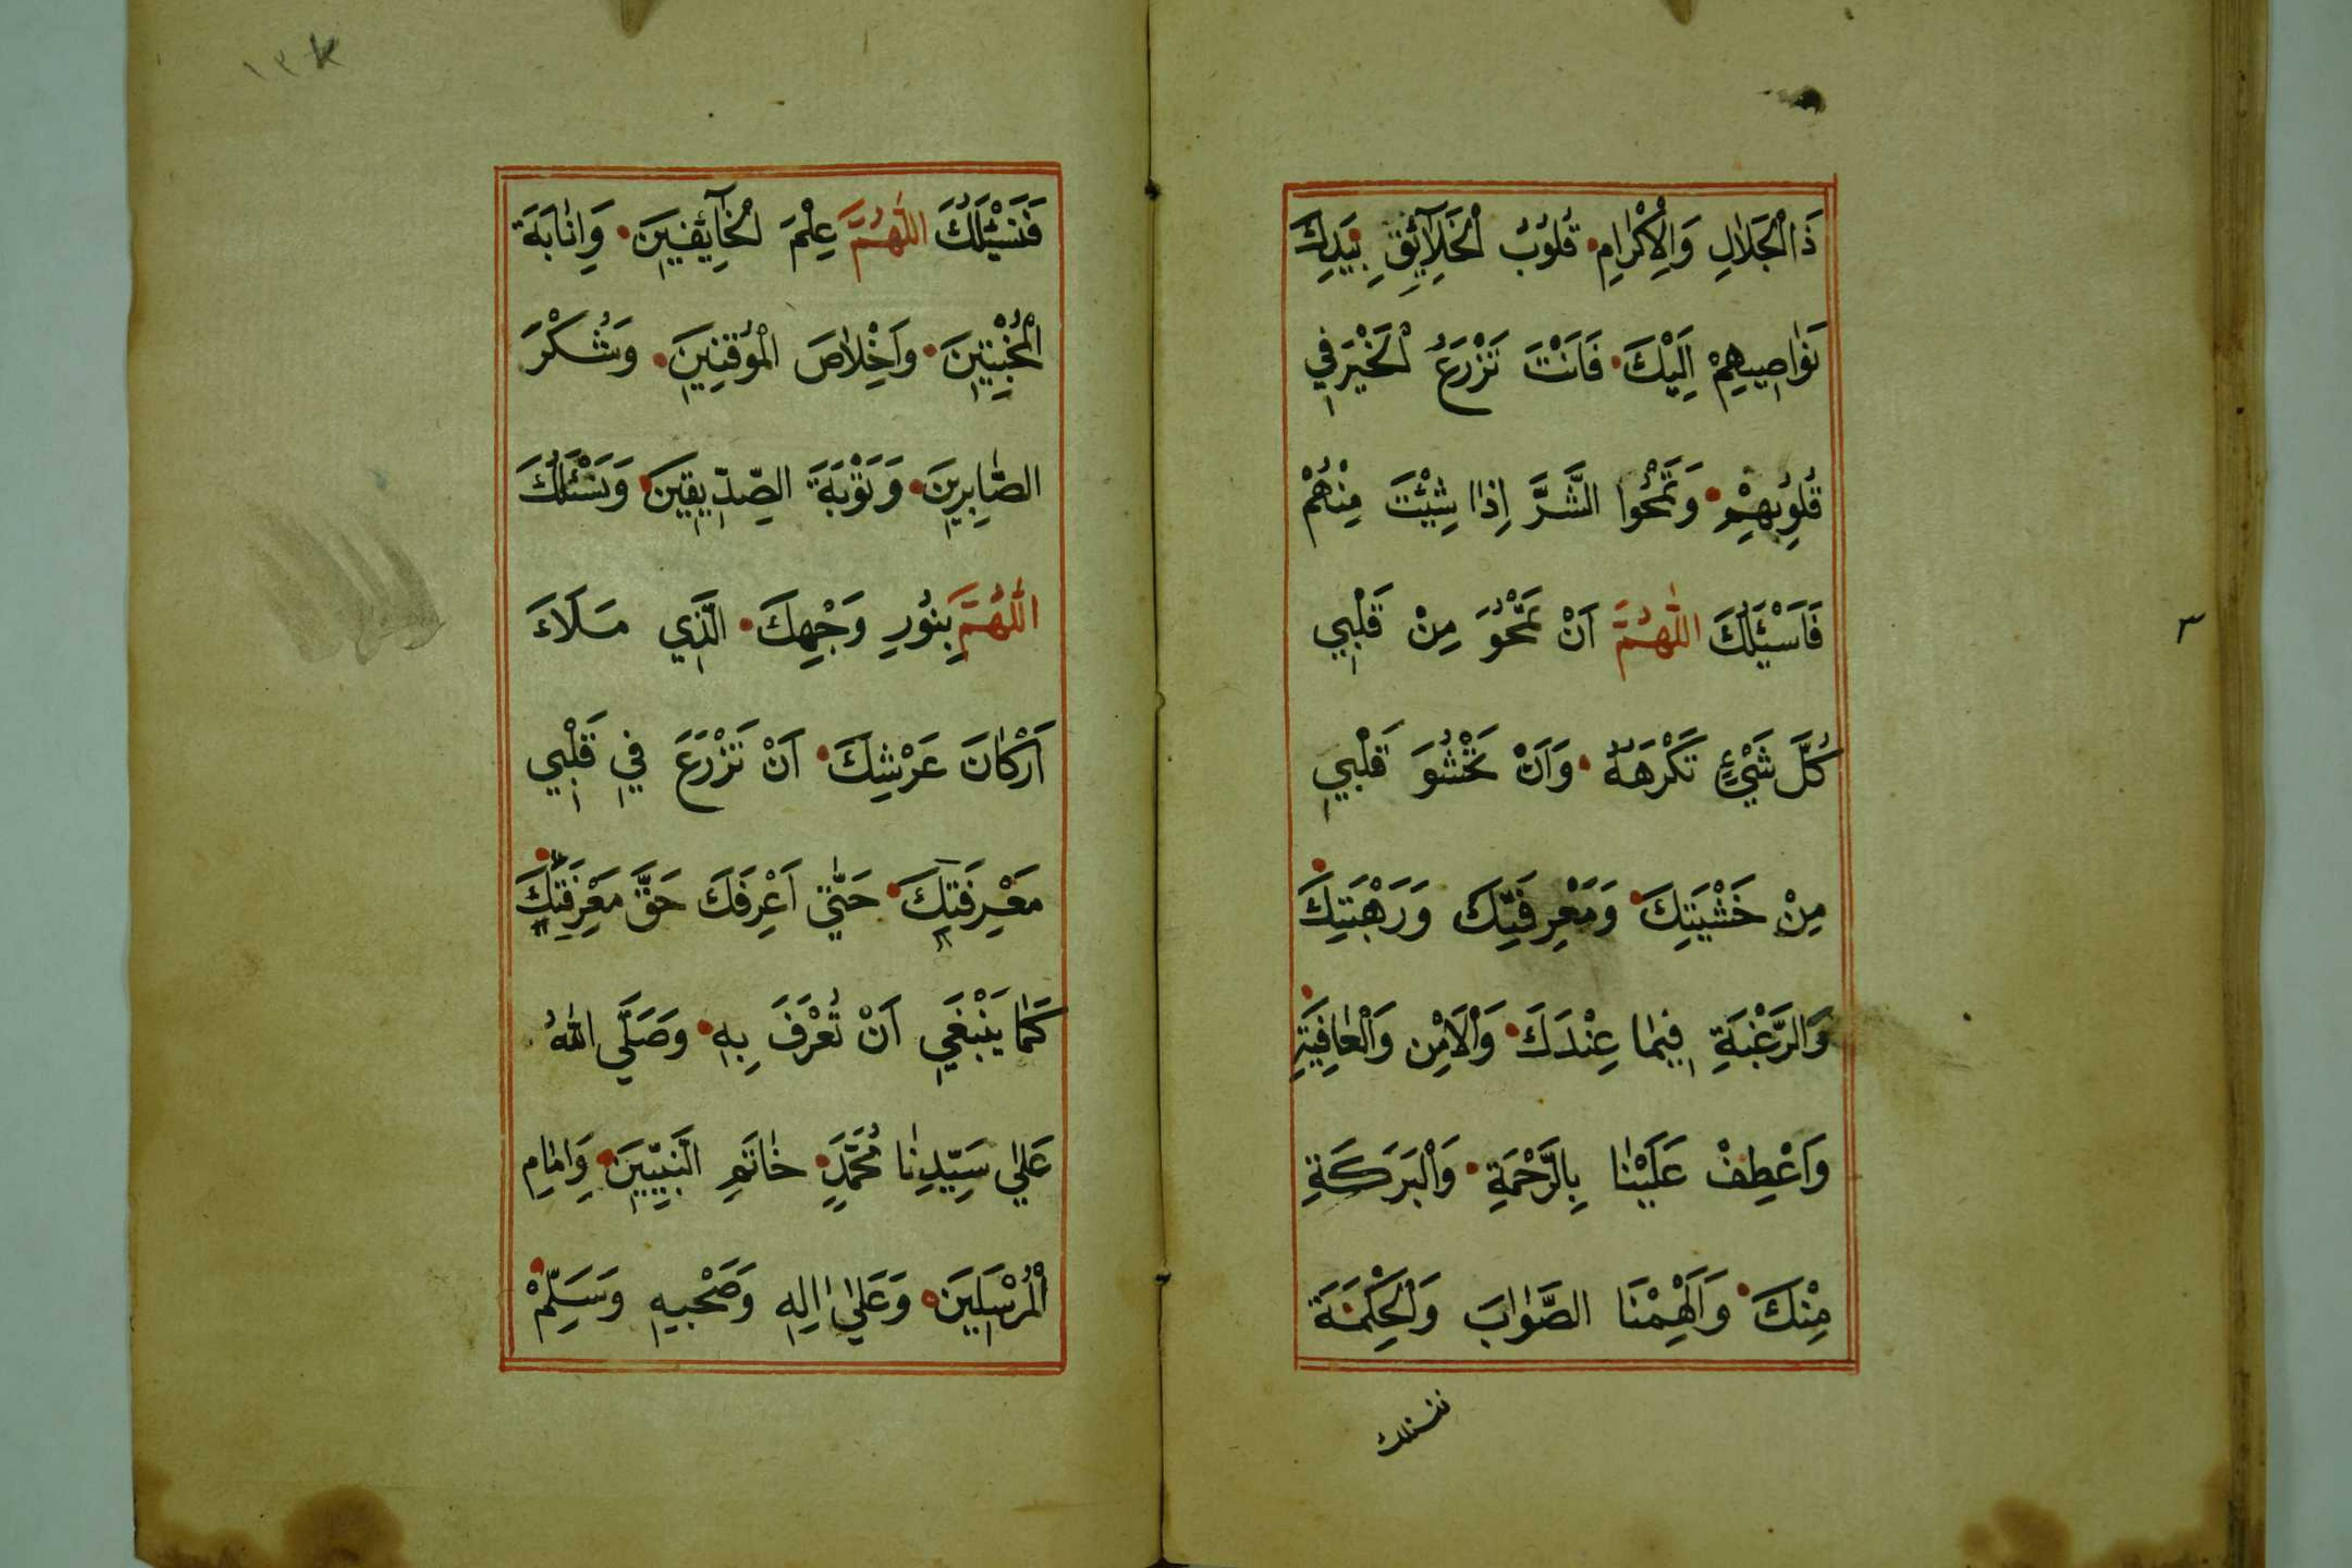 ذَا الْجَلَالِ وَالْاِكْرَامِ قُلُوبُ الْخَلَآئِقِ بِيَدِكَ
نَوَاصِيهِمْ اِلَيْكَ فَاَنْتَ تَزْرَعُ الْخَيْرَ فِي
قُلُوبِهِمْ وَتَمْحُوا الشَّرَّ اِذَا شِئْتَ مِنْهُمْ
فَاَسْئَلُكَ اللّٰهُمَّ اَنْ تَمْحُوَ مِنْ قَلْبِي
كُلَّ شَيْءٍ تَكْرَهُهُ وَاَنْ تَحْشُوَ قَلْبِي
مِنْ خَشْيَتِكَ وَمَعْرِفَتِكَ وَرَهْبَتِكَ
وَالرَّغْبَةِ فِيمَا عِنْدَكَ وَالْاَمْنِ وَالْعَافِيَةِ
وَاعْطِفْ عَلَيْنَا بِالرَّحْمَةِ وَالْبَرَكَةِ
مِنْكَ وَاَلْهِمْنَا الصَّوَابَ وَالْحِكْمَةَ
فنسئلك
٣
١٣
فَنَسْئَلُكَ اللّٰهُمَّ عِلْمَ الْخَآئِفِينَ وَاِنَابَةَ
الْمُخْبِتِينَ وَاِخْلَاصَ الْمُوقِنِينَ وَشُكْرَ
الصَّابِرِينَ وَتَوْبَةَ الصِّدِّيقِينَ وَنَسْئَلُكَ
اللّٰهُمَّ بِنُورِ وَجْهِكَ الَّذِي مَلَاءَ
اَرْكَانَ عَرْشِكَ اَنْ تَزْرَعَ فِي قَلْبِي
مَعْرِفَتَكَ حَتّٰي اَعْرِفَكَ حَقَّ مَعْرِفَتِكَ
كَمَا يَنْبَغِي اَنْ تُعْرَفَ بِهِ وَصَلَّي اللّٰهُ
عَلٰي سَيِّدِنَا مُحَمَّدٍ خَاتَمِ النَّبِيِّينَ وَاِمَامِ
الْمُرْسَلِينَ وَعَلٰي اٰلِهِ وَصَحْبِهِ وَسَلِّمْ